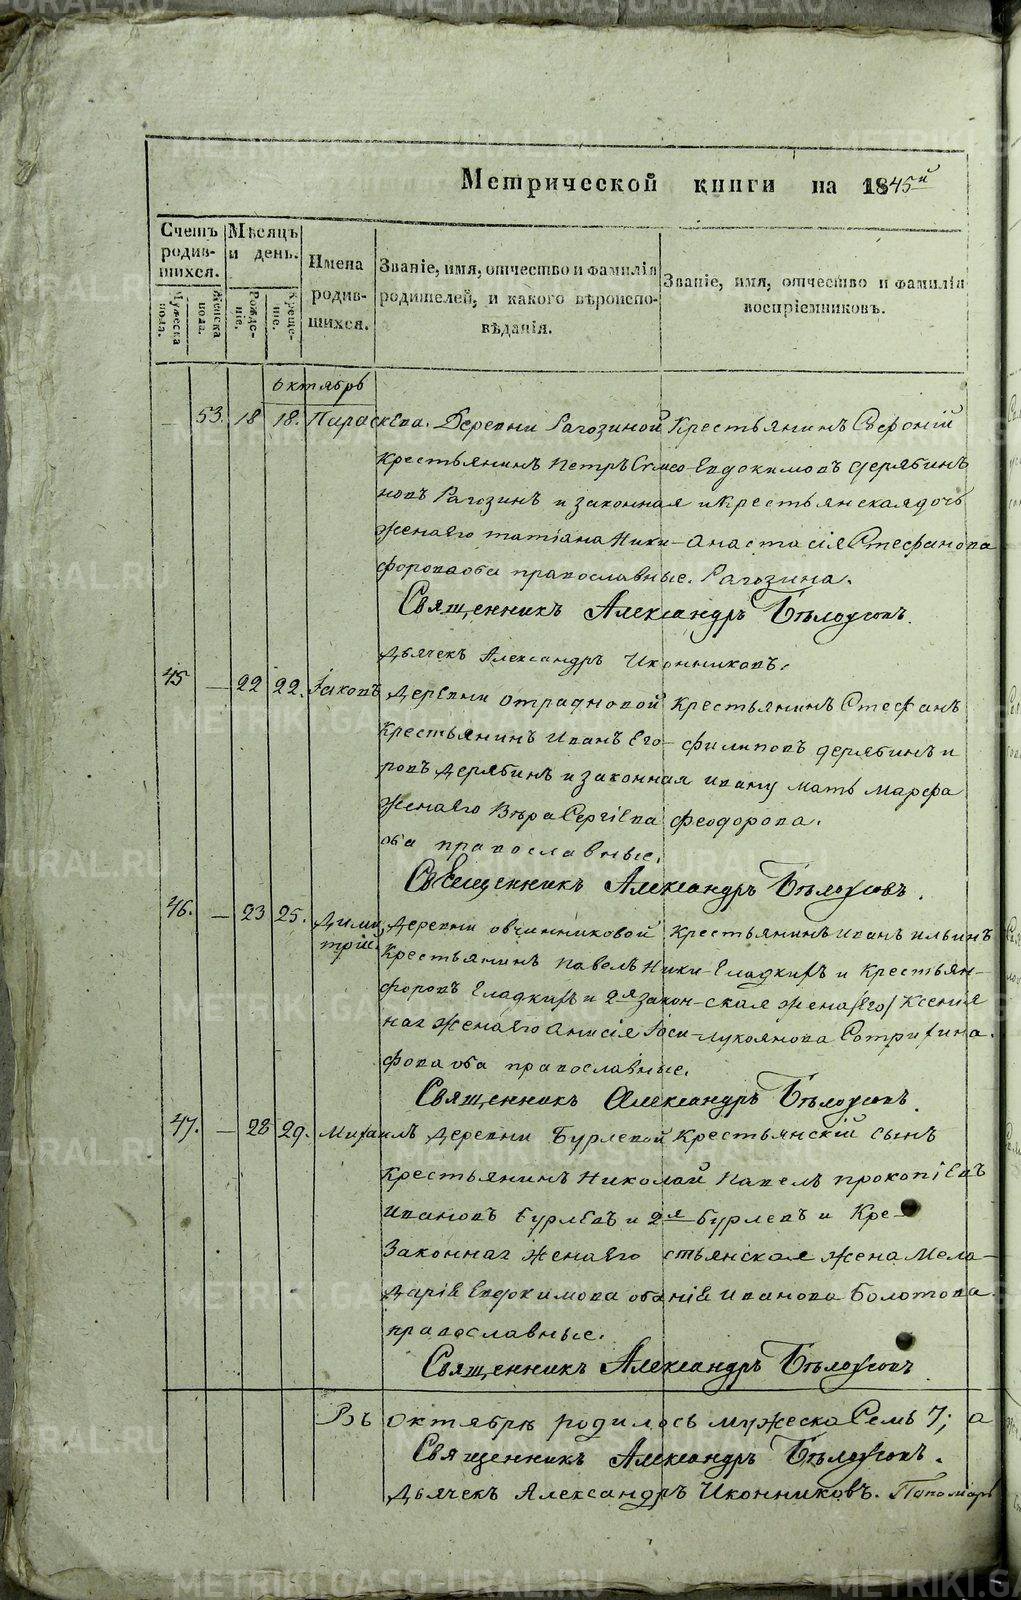 Метрической книги на 1845й
Счетъ родившихся.
Мужеска пола.
Женска пола.
Мѣсяцъ и день.
Рожденіе.
Крещеніе.
Имена родившихся.
Званіе, имя, отчество и фамилія родителей, и какого вѣроисповѣданія.
Званіе, имя, отчество и фамилія воспріемниковъ.
Октябрь
53. 18 18. Параскева. Деревни Рагозиной Крестьянинъ
крестьянинъ Петръ Симо- Евдокимовъ Дерябинъ
новъ Рагозинъ и законная и Крестьянская дочь
жена его татіана Ники- Анастасія Стефанова
форова оба православные. Рагозина.
Священникъ Александръ Бѣлоусовъ.
Дьячекъ Александръ Иконниковъ.
45 — 22 22. Іаковъ Деревни отрадновой Крестьянинъ Стефанъ
Крестьянинъ Иванъ Его- Филиповъ Дерябинъ и
ровъ Дерябинъ и законная ивану мать Марфа
жена его Вѣра Сергіева Феодорова.
оба православные.
Священникъ Александръ Бѣлоусовъ.
46. — 23 25. Дими- Деревни овчинниковой Крестьянинъ Иванъ Ильинъ
трій. Крестьянинъ Павелъ Ники- Гладкихъ и Крестьян-
форовъ Гладкихъ и 2я закон- ская жена /его/ Ксенія
ная жена его Анисія Іоси- Лукоянова
фова оба православные.
Священникъ Александръ Бѣлоусовъ.
47. — 28 29. Михаилъ Деревни Бурлевой Крестьянскій сынъ
Крестьянинъ Николай Павелъ прокопіевъ
Ивановъ Бурлевъ и 2я Бурлевъ и Кре-
Законная жена его стьянская жена Мела-
Дарія Евдокимова оба нія Иванова Болотова.
православные.
Священникъ Александръ Бѣлоусовъ
Въ октябрѣ родилось мужеска Семь 7; а
Священникъ Александръ Бѣлоусовъ.
Дьячекъ Александръ Иконниковъ. Пономарь
METRIKI.GASO-URAL.RU